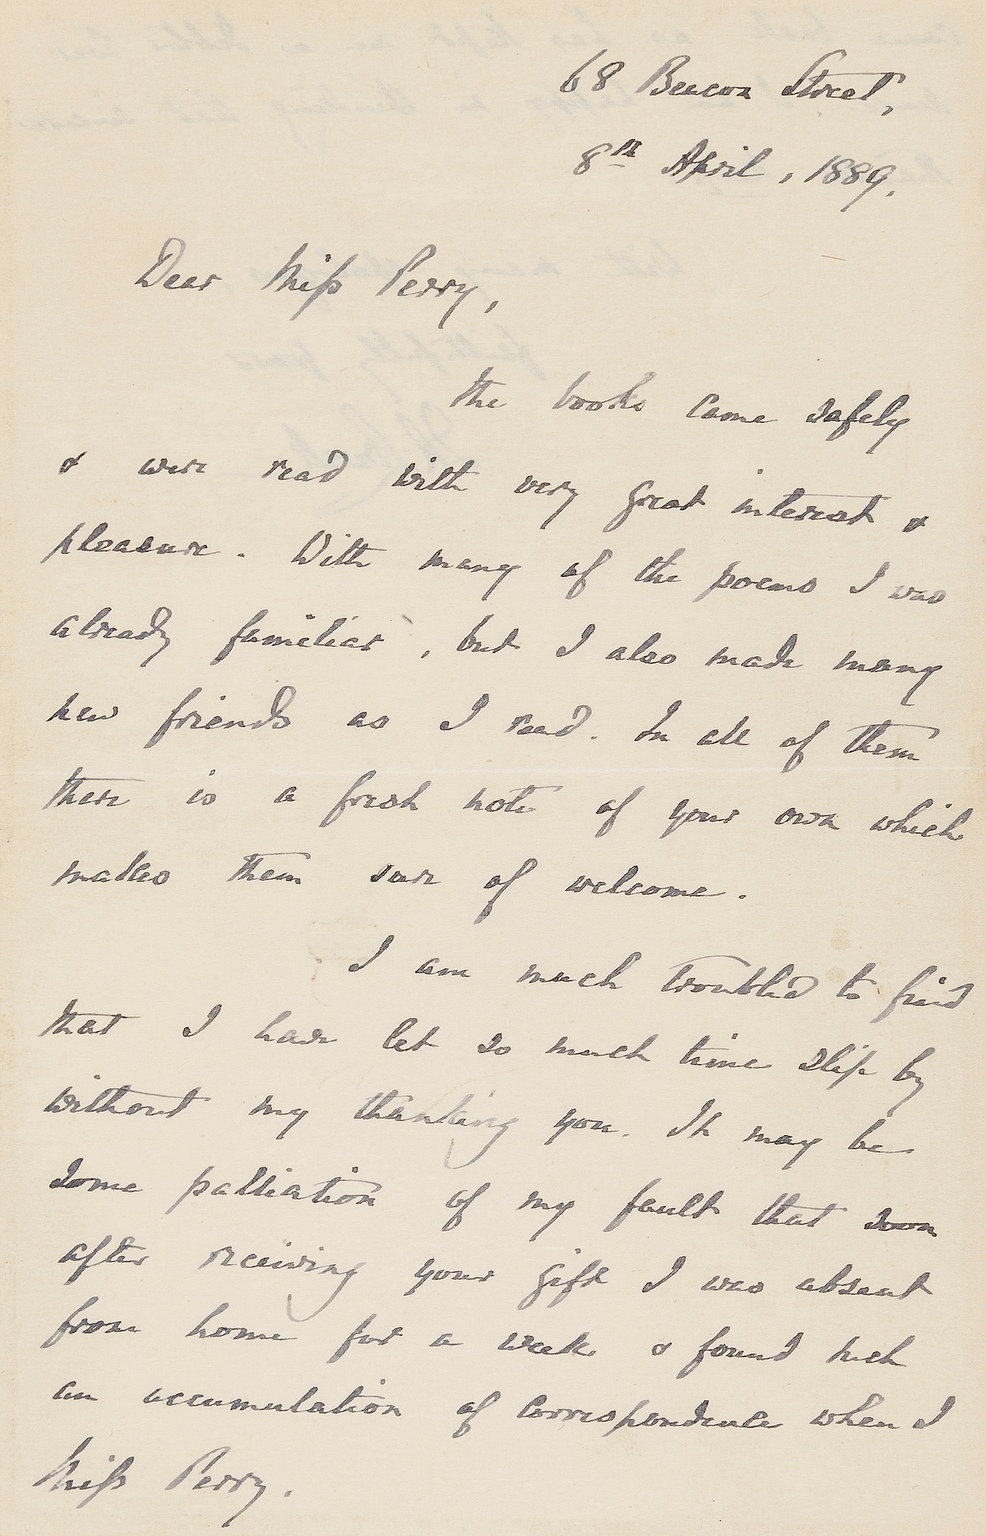 68 Beacon Street,
8th April, 1889.
Dear Miss Perry,
The books came safely
& were read with very great interest &
pleasure. With many of the poems I was
already familiar, but I also made many
new friends as I read. In all of them
there is a fresh note of your own which
makes them sure of welcome.
I am much troubled to find
that I have let so much time slip by
without my thanking you. It may be
some palliation of my fault that soon
after receiving your gift I was absent
from home for a week & found such
an accumulation of correspondence when I
Miss Perry.